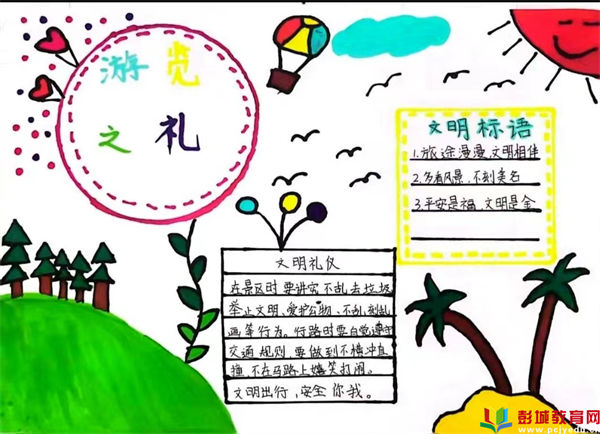 游览
之礼
文明标语
1.旅途漫漫,文明相伴
2.多看风景,不刻美名
3.平安是福,文明是金
文明礼仪
在景区时要讲究不乱丢垃圾
举止文明、爱护公物、不乱刻乱
画等行为。行路时要自觉遵守
交通规则,要做到不横冲直
撞,不在马路上嬉笑打闹。
文明出行,安全你我。
彭城教育网